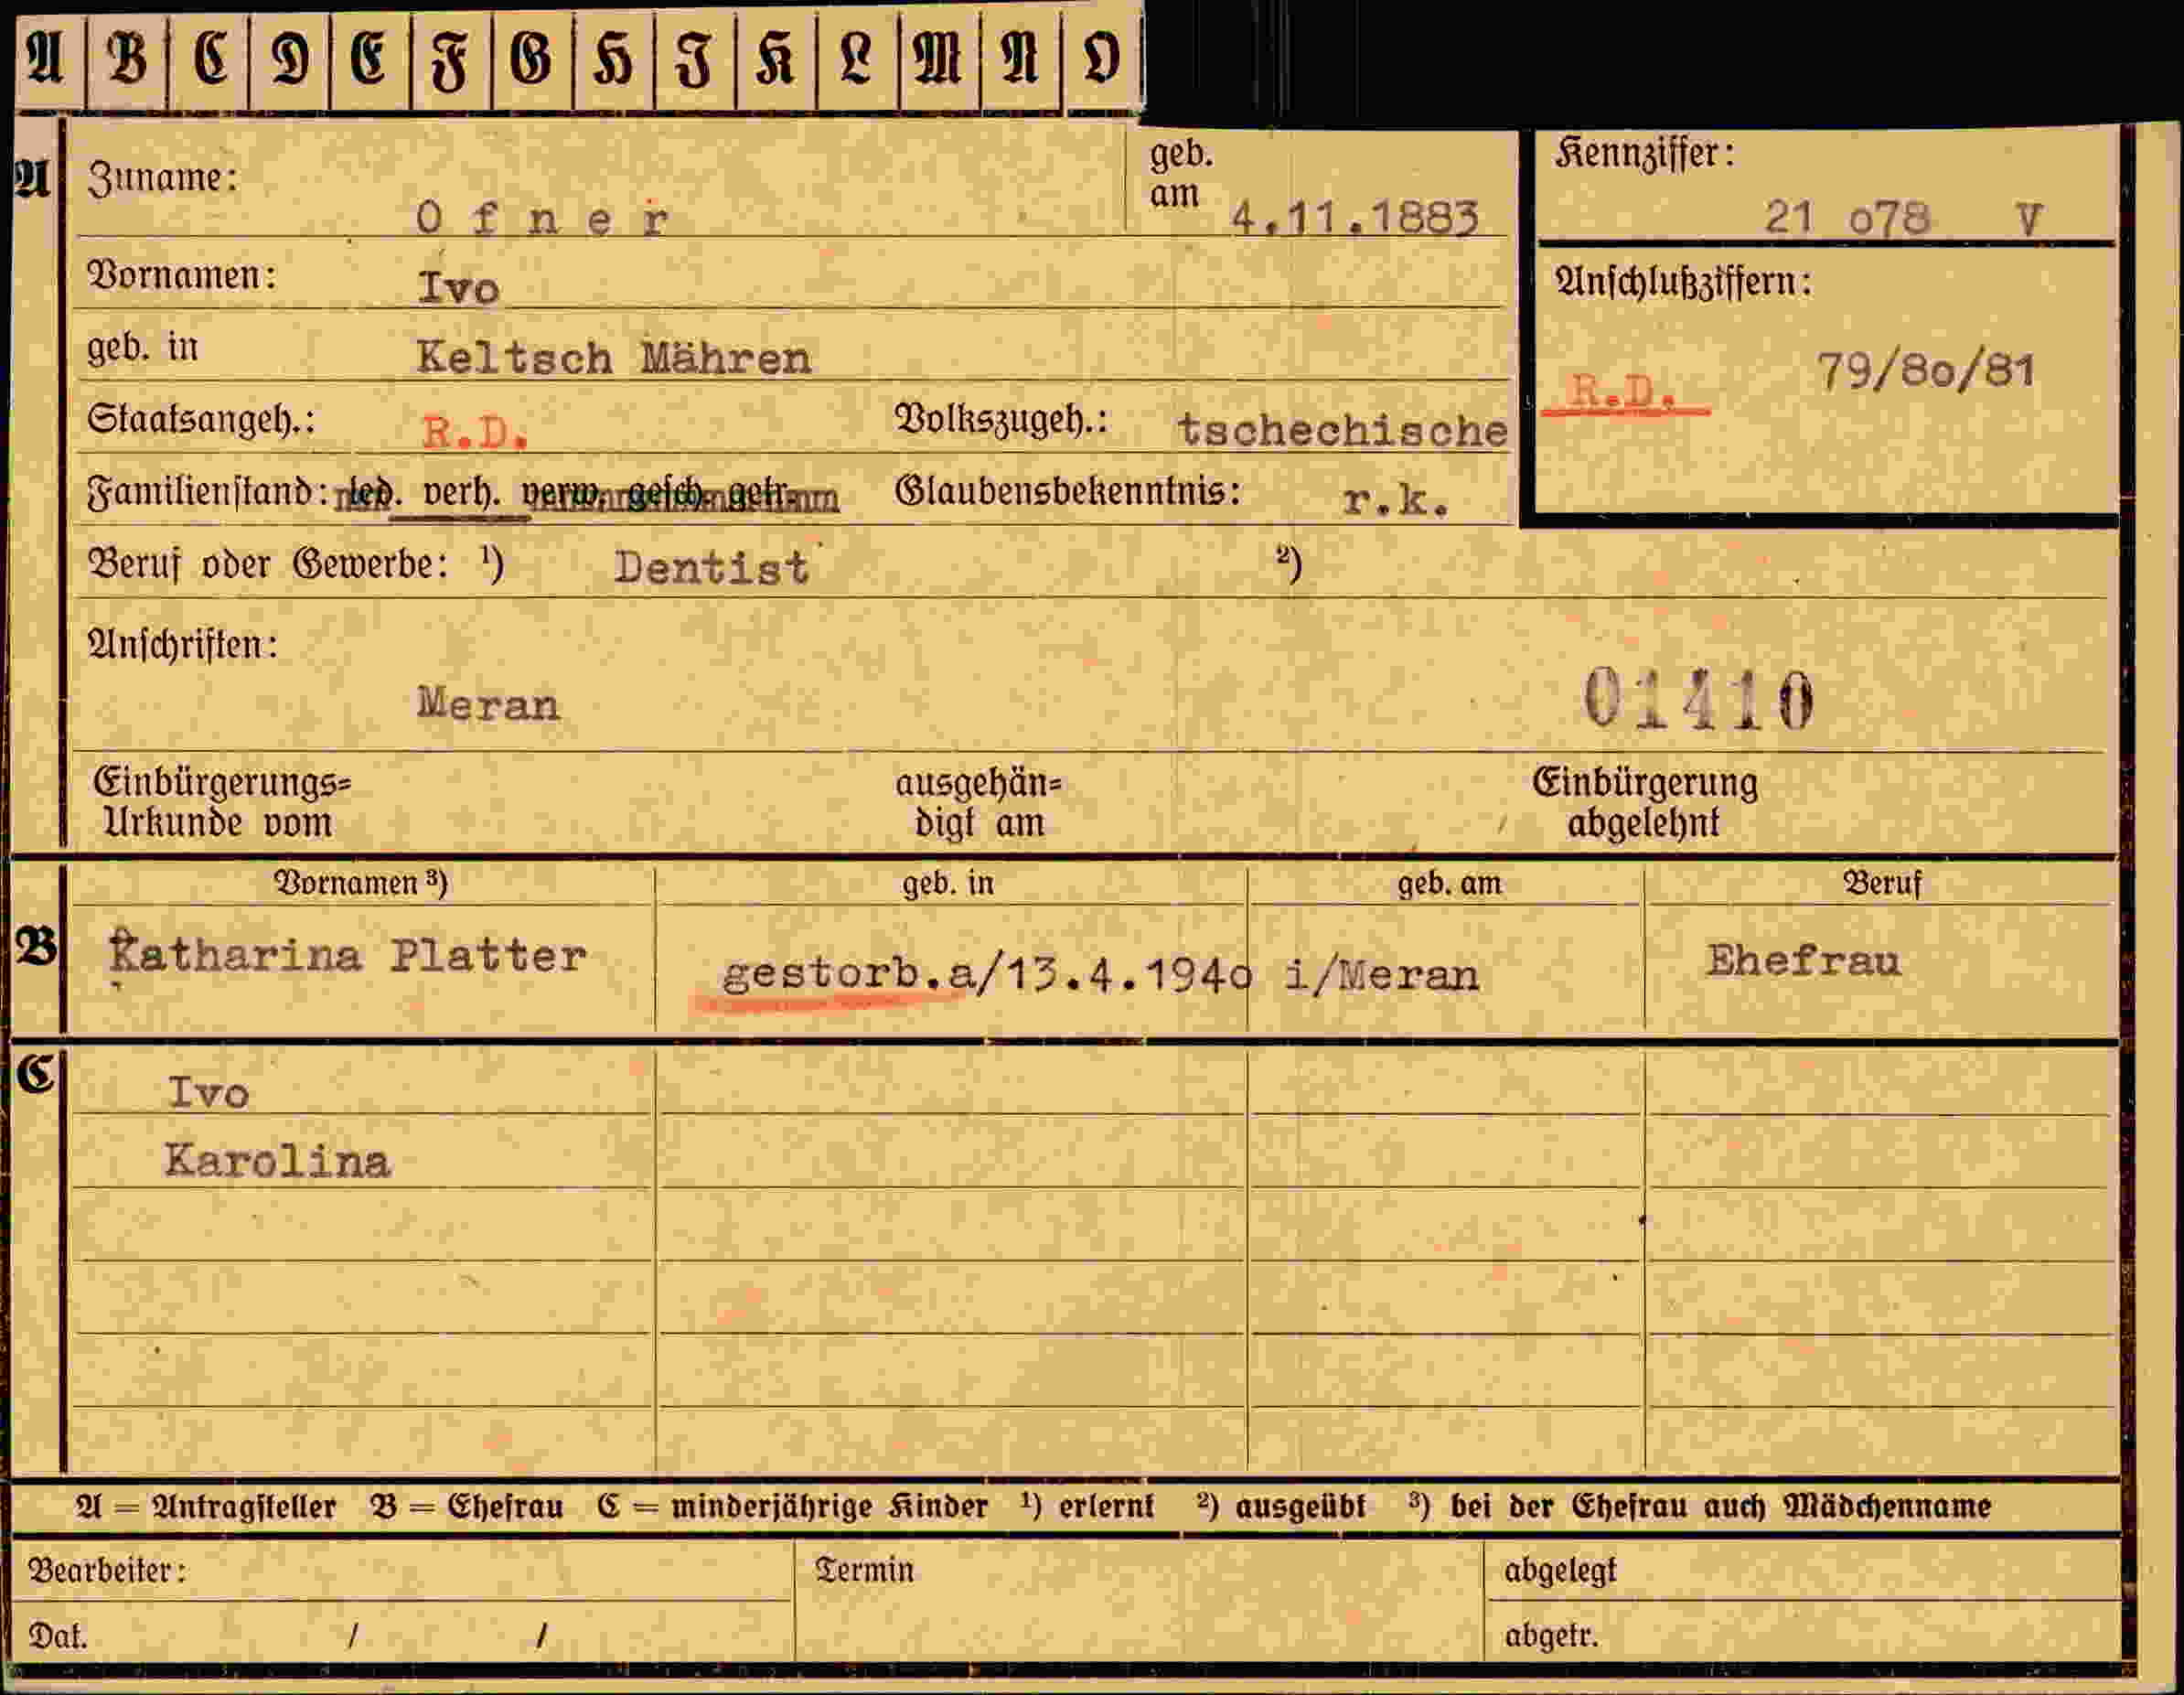 A B C D E F G H I K L M N O
A Zuname: O f n e r geb. am 4.11.1883 Kennziffer: 21 o78 V
Vornamen: Ivo
Anschlußziffern:
geb. in Keltsch Mähren
R.D. 79/8o/81
Staatsangeh.: R.D. Volkszugeh.: tschechische
Familienstand: led. verh. verw. gesch. getr. Glaubensbekenntnis: r.k.
Beruf oder Gewerbe: ¹) Dentist ²)
Anschriften:
Meran 01410
Einbürgerungs= ausgehän= Einbürgerung
Urkunde vom digt am abgelehnt
Vornamen ³) geb. in geb. am Beruf
B Katharina Platter gestorb.a/13.4.194o i/Meran Ehefrau
C Ivo
Karolina
A = Antragsteller B = Ehefrau C = minderjährige Kinder ¹) erlernt ²) ausgeübt ³) bei der Ehefrau auch Mädchenname
Bearbeiter: Termin abgelegt
Dat. / / abgetr.